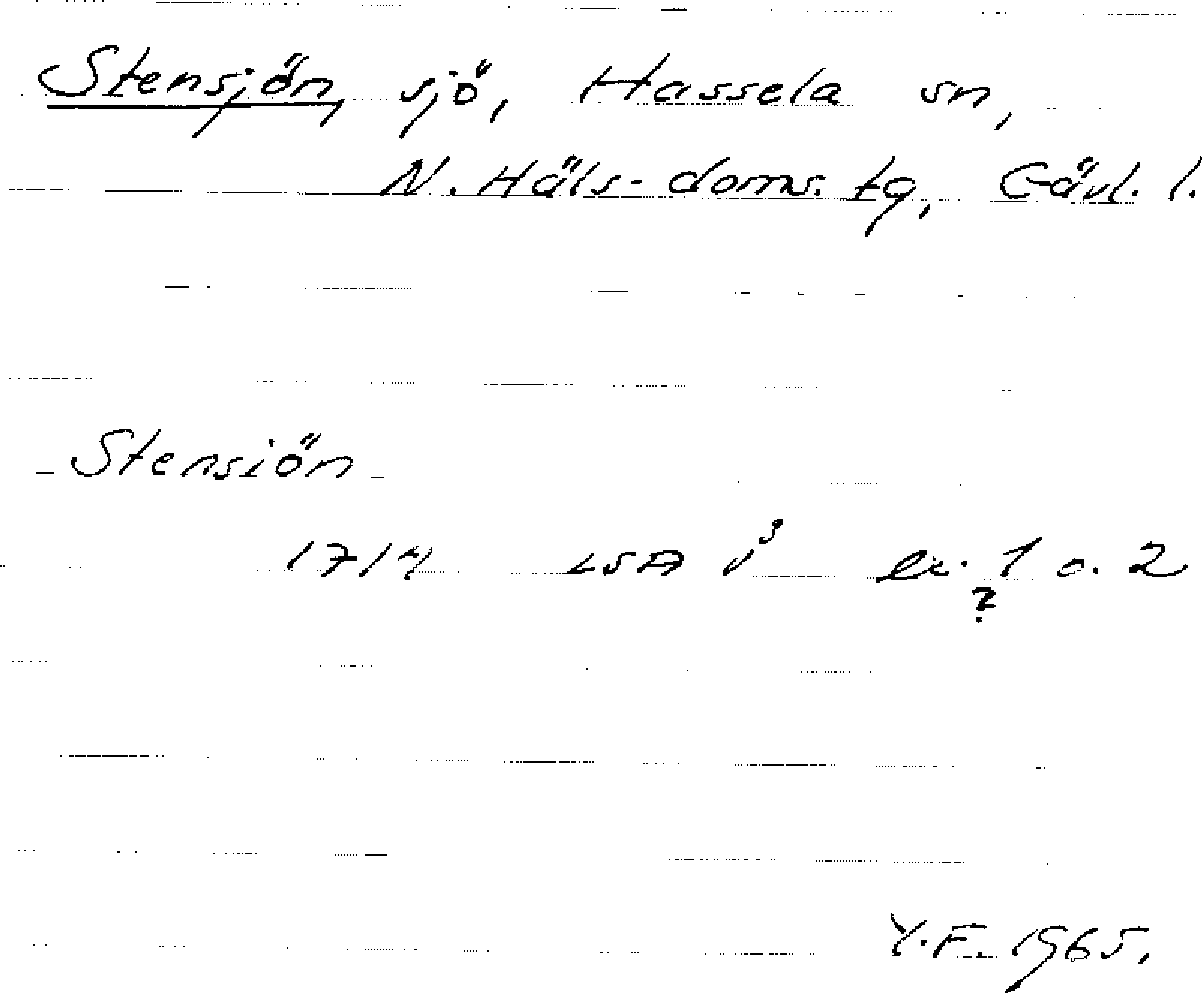 Stensjön, sjö, Hassela sn,
N. Häls. doms. tg, Gävl. l.
Stensiön
1714 LSA v³ ex. 1 o. 2
?
Y.F. 1965.